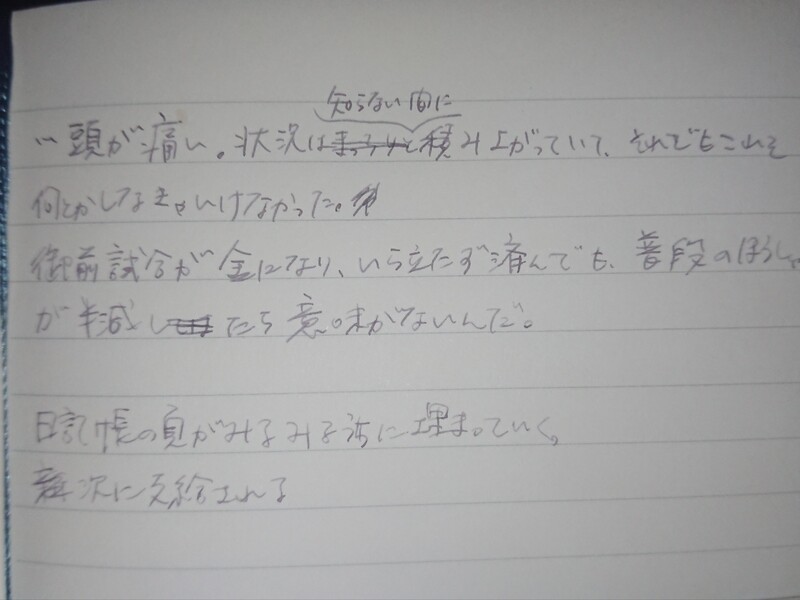 知らない間に
…頭が痛い。状況は積み上がっていて、それでもこれを
何とかしなきゃいけなかった。
御前試合が金になり、いら立たず痛んでも、普段のほうし
が半減したら意味がないんだ。
日記帳の頁がみるみるうちに埋まっていく。
次に支給される